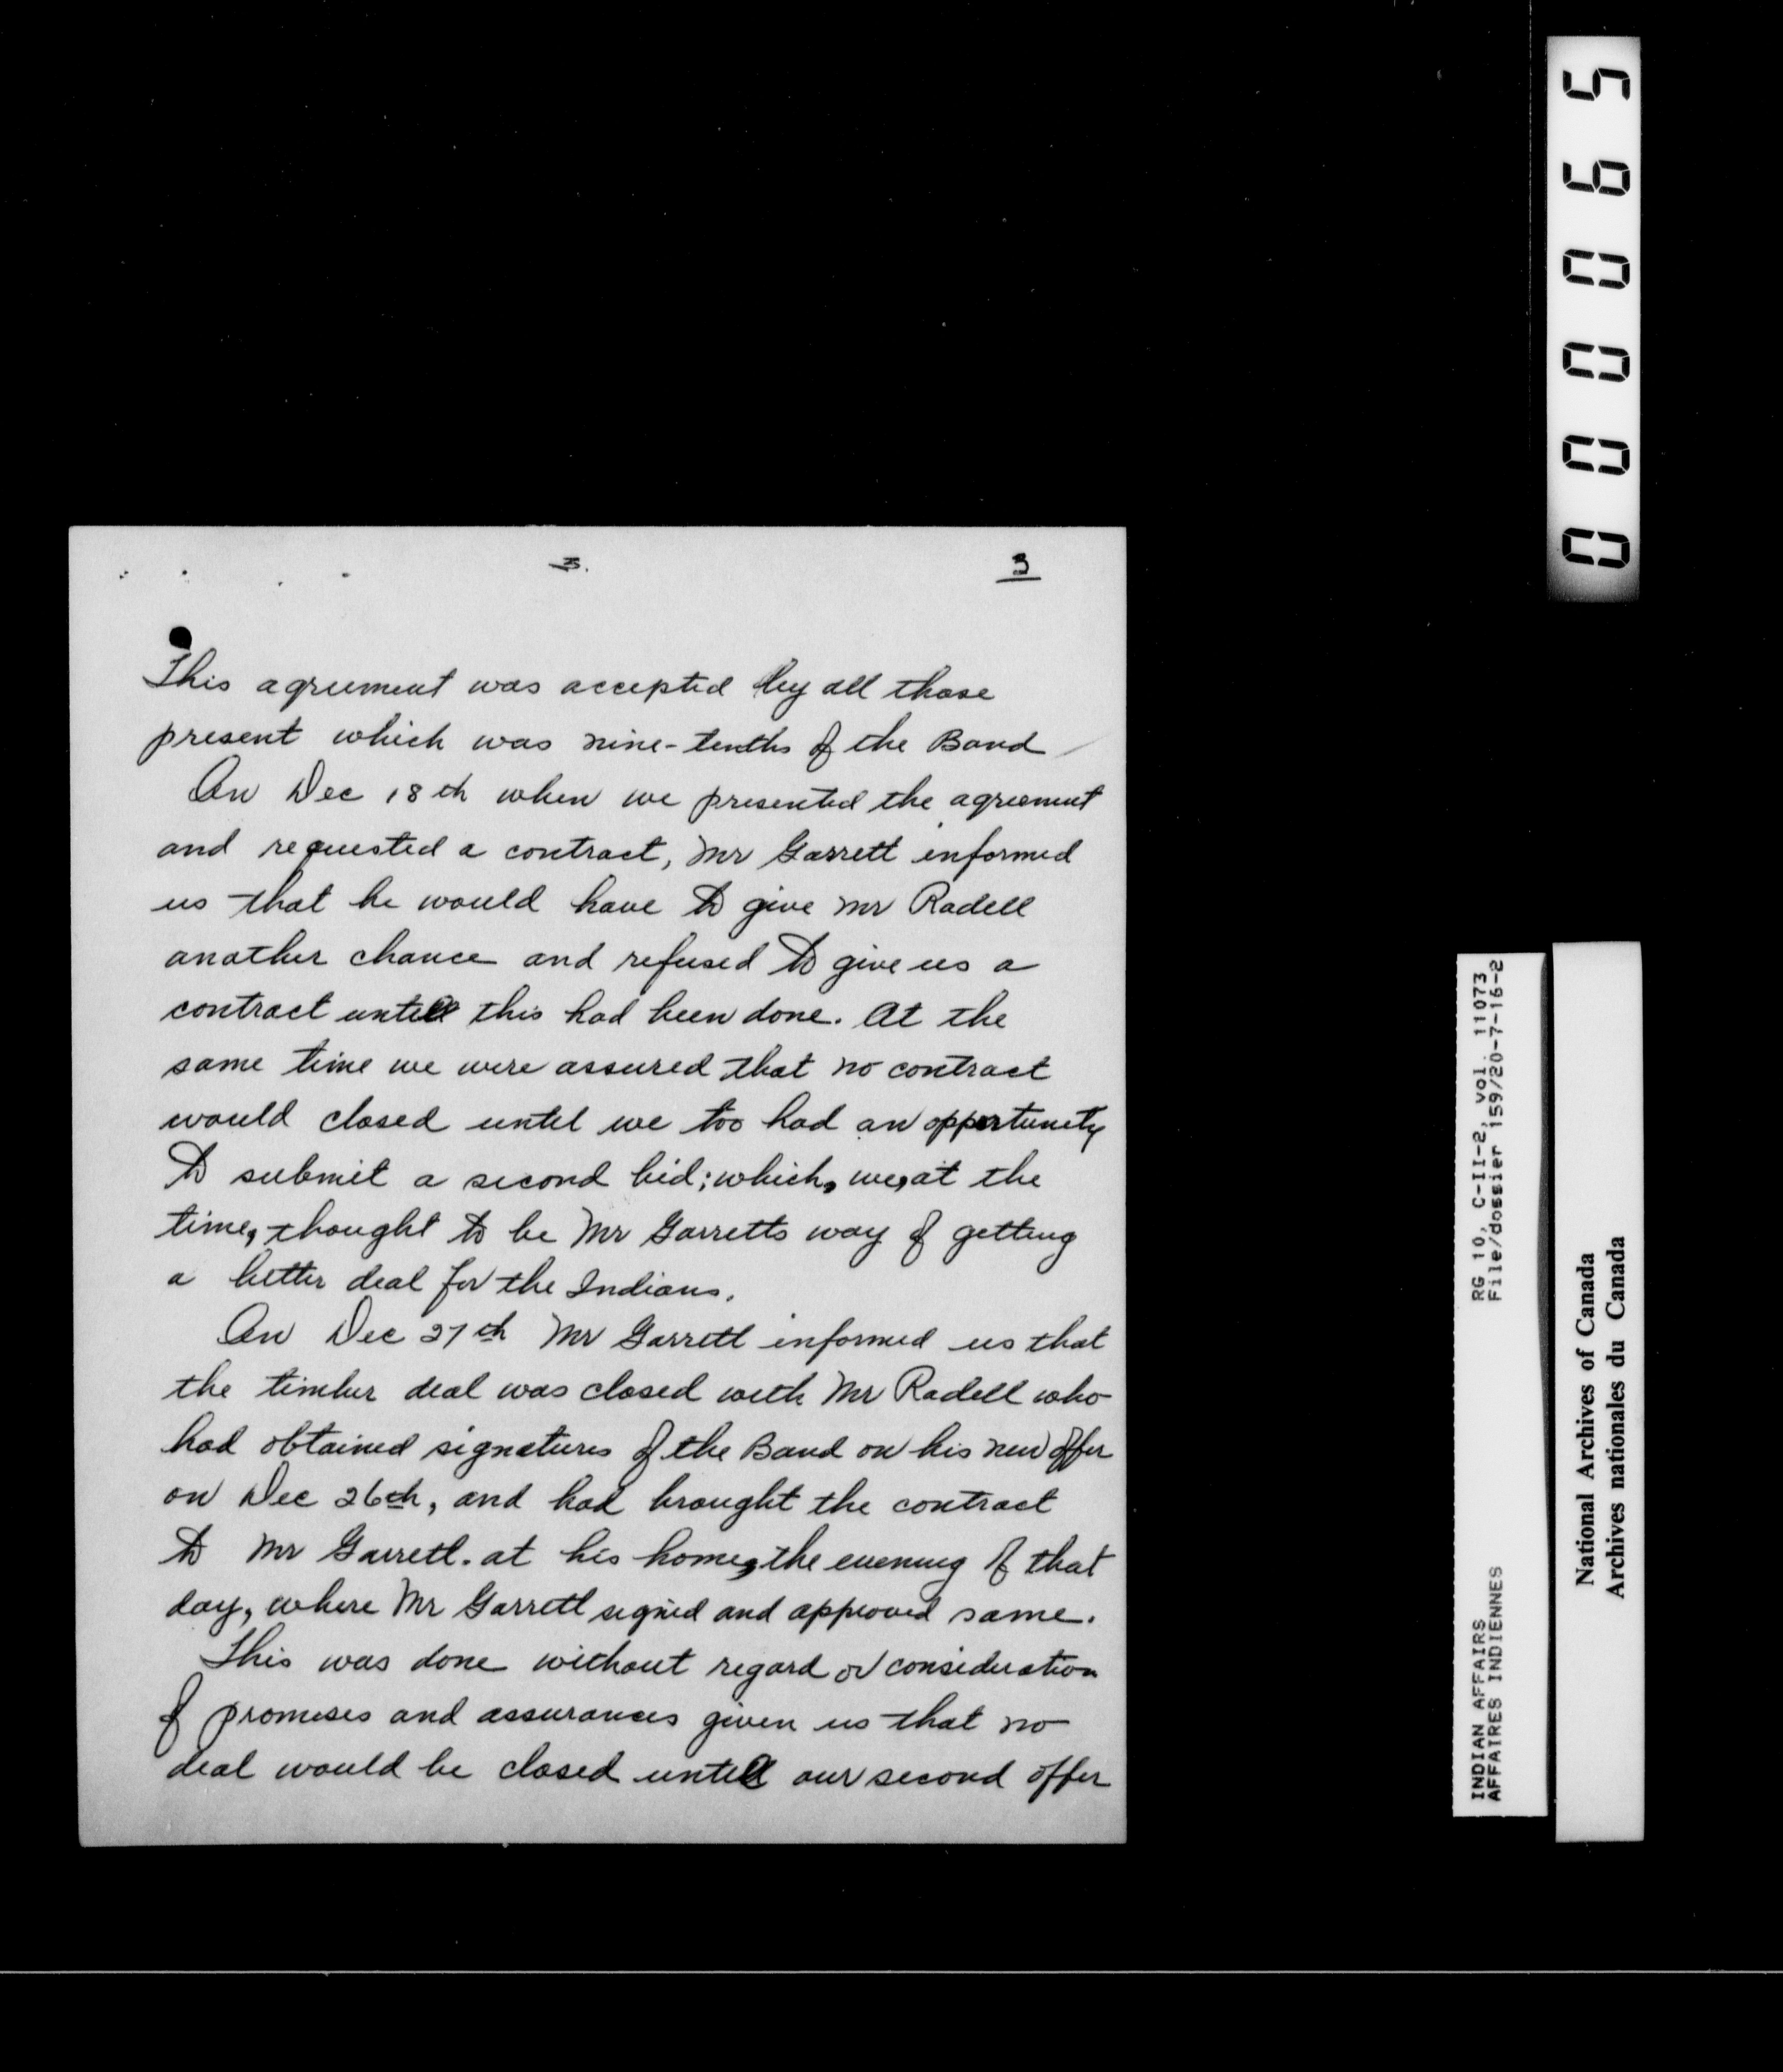 3.
3
This agreement was accepted by all those
present which was nine-tenths of the Band
On Dec 18th when we presented the agreement
and requested a contract, Mr Garrett informed
us that he would have to give Mr Radell
another chance and refused to give us a
contract untill this had been done. At the
same time we were assured that no contract
would closed until we too had an opportunity
to submit a second bid; which, we, at the
time, thought to be Mr Garretts way of getting
a better deal for the Indians.
On Dec 27th Mr Garrett informed us that
the timber deal was closed with Mr Radell who
had obtained signatures of the Band on his new offer
on Dec 26th, and had brought the contract
to Mr Garrett. at his home, the evening of that
day, where Mr Garrett signed and approved same.
This was done without regard or consideration
of promises and assurances given us that no
deal would be closed untill our second offer
000065
RG 10, C-II-2, vol. 11073
File/dossier 159/20-7-16-2
INDIAN AFFAIRS
AFFAIRES INDIENNES
National Archives of Canada
Archives nationales du Canada